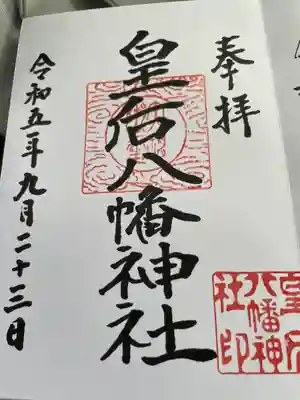 奉拝
皇后八幡神社
令和五年九月二十三日
皇后
八幡神
社印